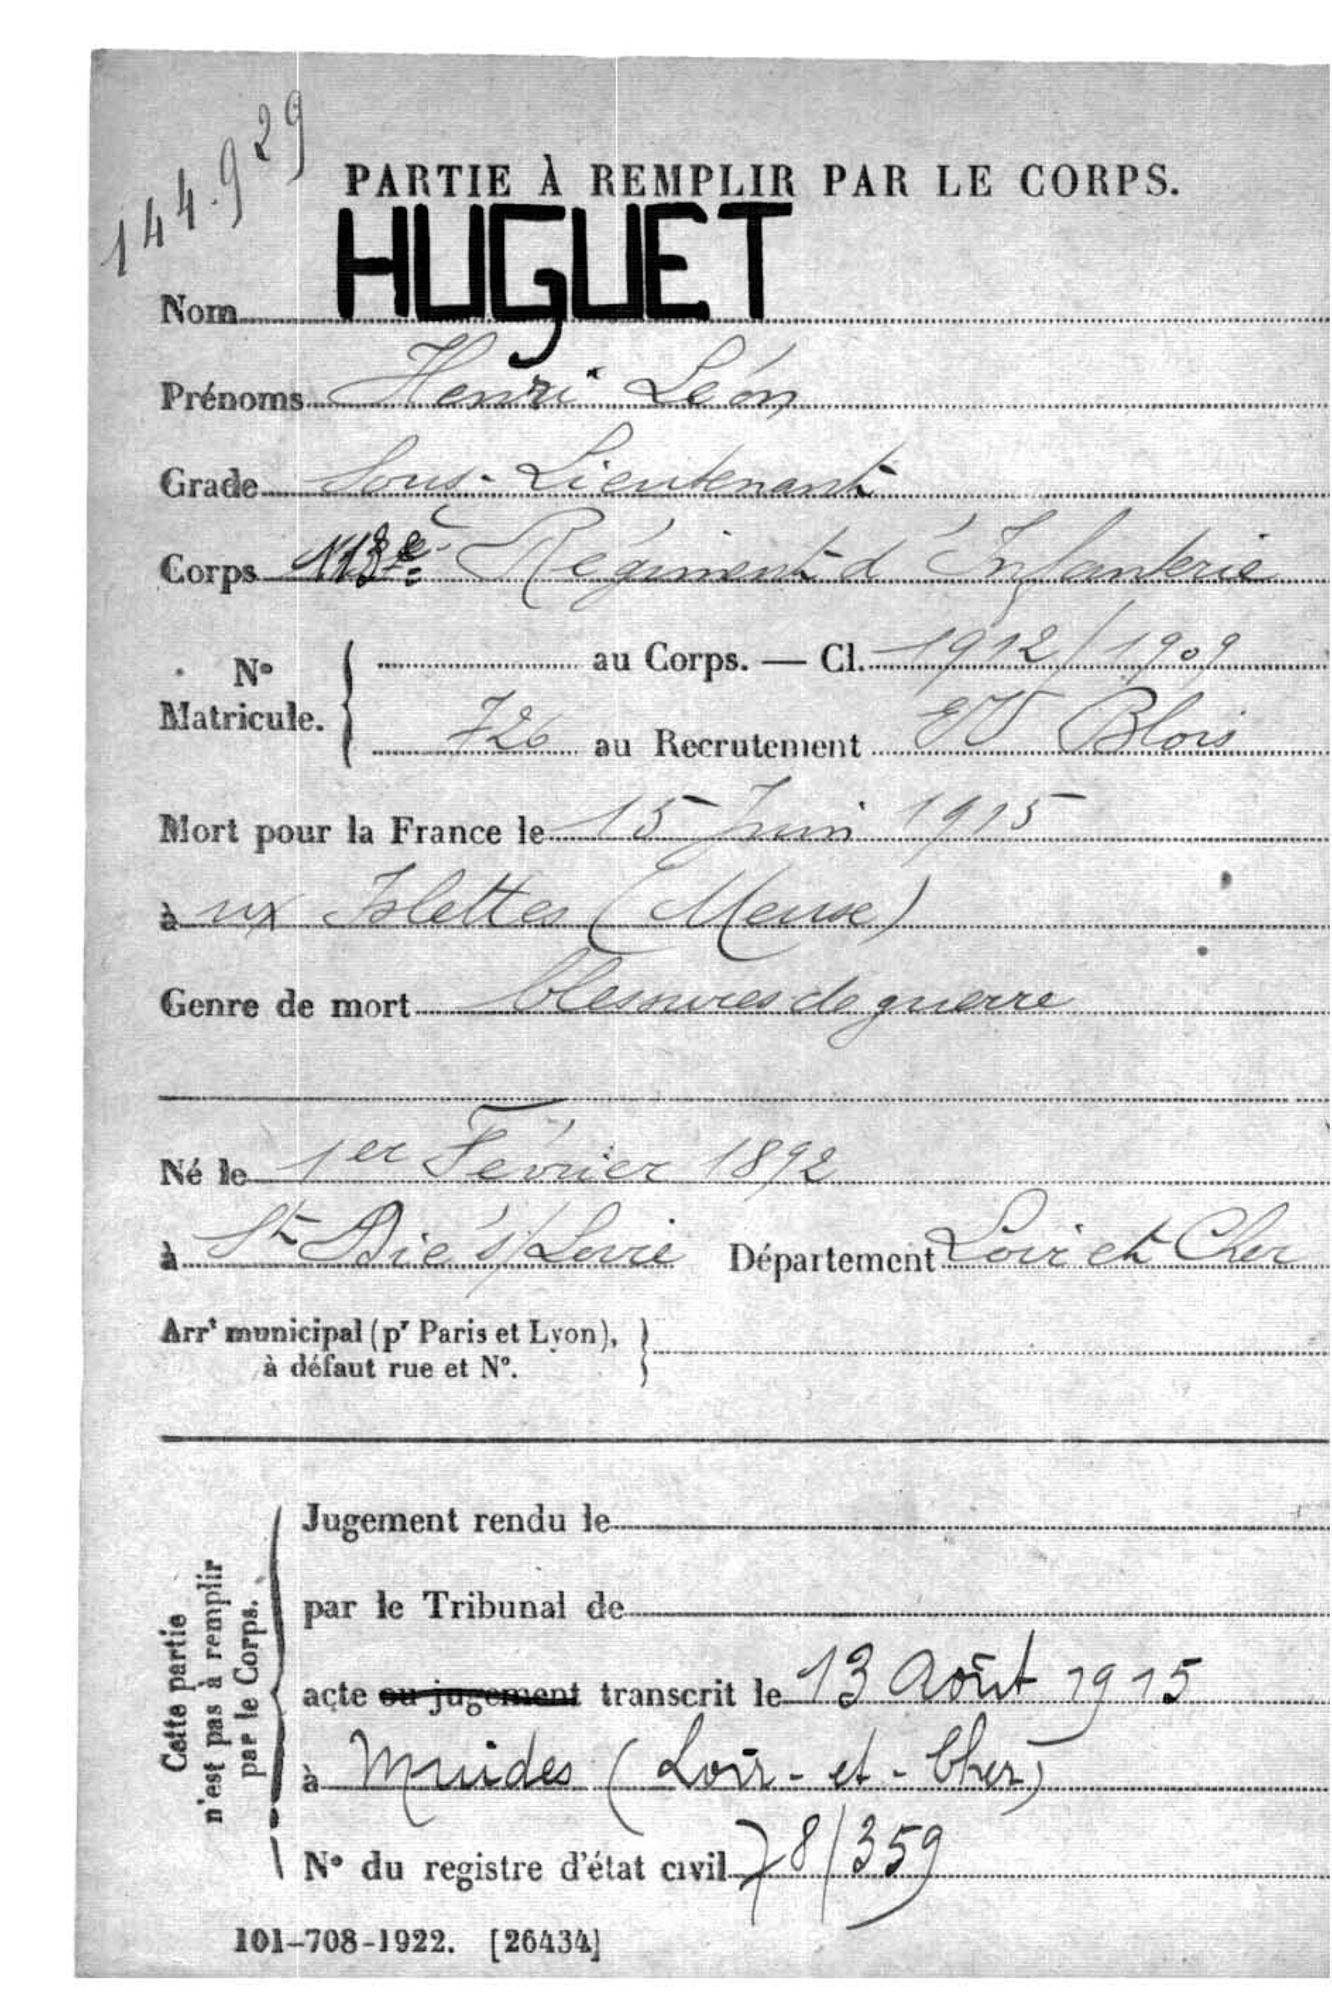 144.929
PARTIE À REMPLIR PAR LE CORPS.
Nom HUGUET
Prénoms Henri Léon
Grade Sous-Lieutenant
Corps 113e Régiment d'Infanterie
N° Matricule. { au Corps. — Cl. 1912/1909
726 au Recrutement EV Blois
Mort pour la France le 15 Juin 1915
à ux Islettes (Meuse)
Genre de mort blessures de guerre
Né le 1er Février 1892
à St Dié s/ Loire Département Loir et Cher
Arrt municipal (pr Paris et Lyon), }
à défaut rue et N°.
Cette partie
n'est pas à remplir
par le Corps.
Jugement rendu le
par le Tribunal de
acte ou jugement transcrit le 13 Août 1915
à Muides (Loir-et-Cher)
N° du registre d'état civil 78/359
101-708-1922. [26434]